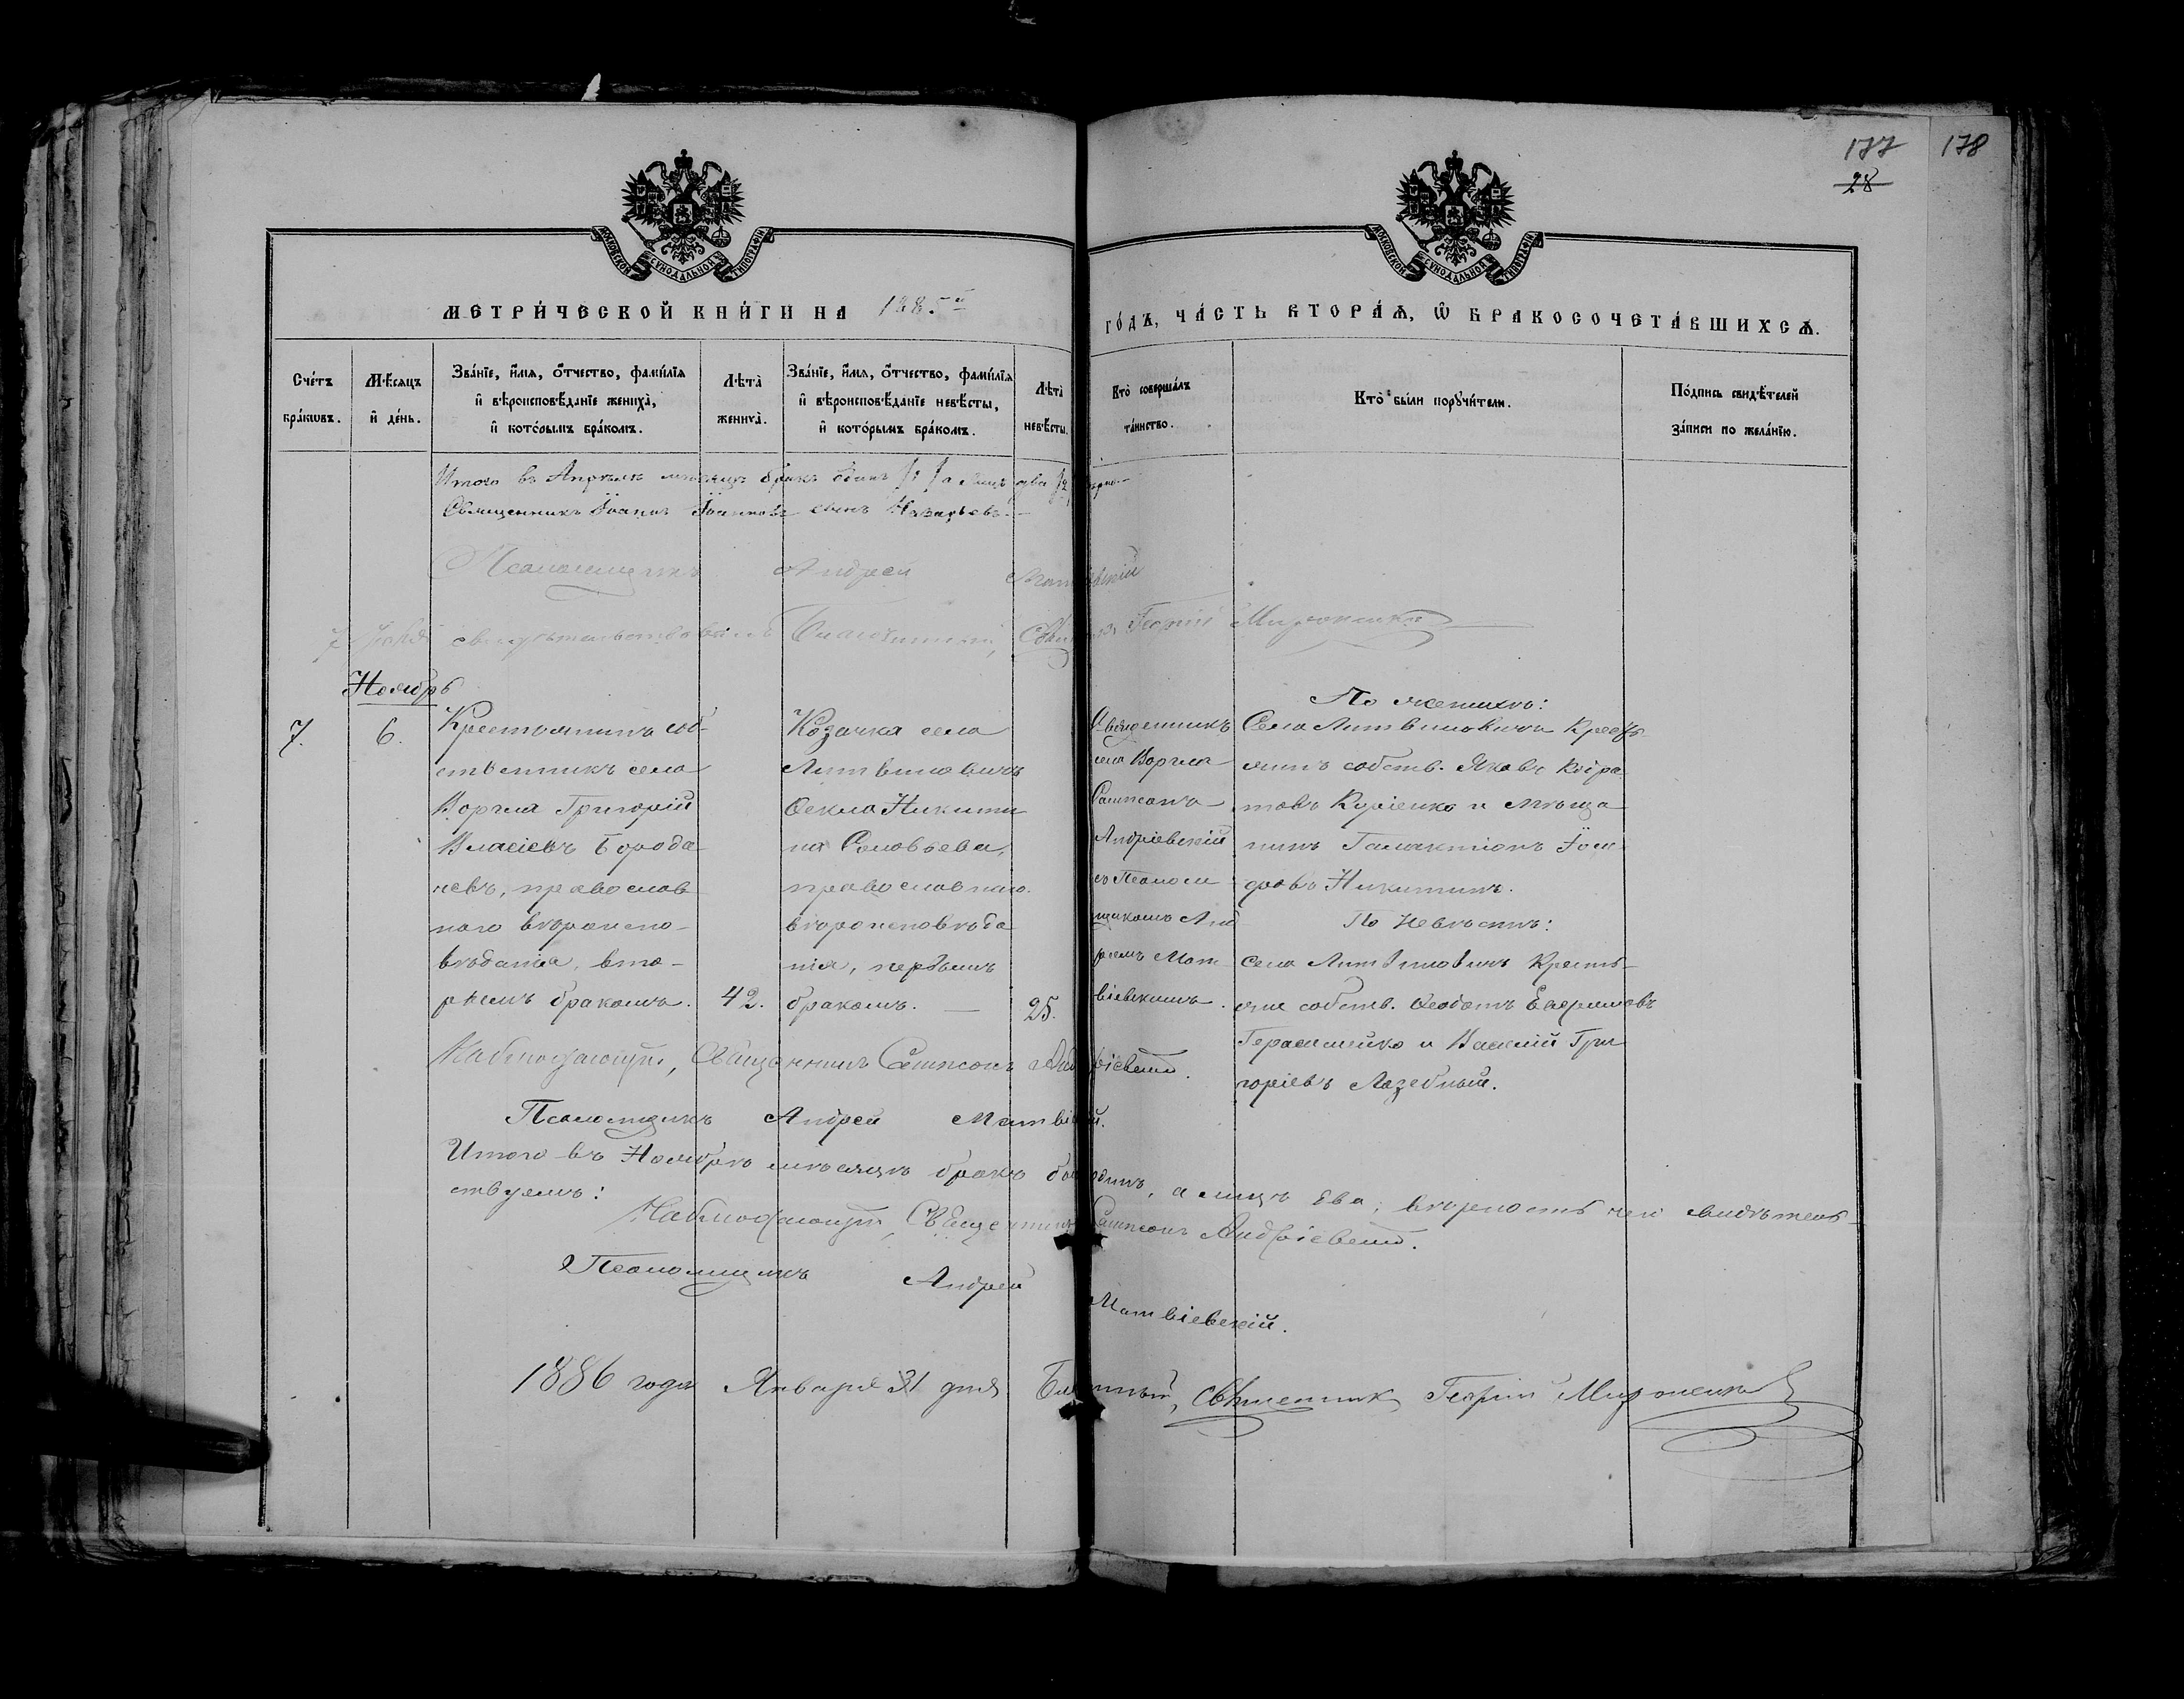 177 178
28
МОСКОВСКОЙ СѴНОДАЛЬНОЙ ТИПОГРАФІИ
МОСКОВСКОЙ СѴНОДАЛЬНОЙ ТИПОГРАФІИ
МЕТРИ́ЧЕСКОЙ КНИ́ГИ НА 1885й
ГО́ДЪ, ЧА́СТЬ ВТОРА́Ѧ, Ѽ БРАКОСОЧЕТА́ВШИХСѦ.
Сче́тъ бра́кѡвъ.
Мѣ́сяцъ и҆ де́нь.
Зва́нїе, и҆́мя, ѻ҆́тчество, фами́лїя и҆ вѣроисповѣ́данїе жениха̀, и҆ кото́рымъ бра́комъ.
Лѣта̀ жениха̀.
Зва́нїе, и҆́мя, ѻ҆́тчество, фами́лїя и҆ вѣроисповѣ́данїе невѣ́сты, и҆ кото́рымъ бра́комъ.
Лѣта̀ невѣ́сты.
Кто̀ соверша́лъ та́инство.
Кто̀ бы́ли порꙋчи́тели.
По́дпись свидѣ́телей за́писи по жела́нїю.
Итого въ Апрѣлѣ мѣсяцѣ бракъ одинъ /1/ а лицъ два /2/
Священникъ Іоаннъ Іоанновъ сынъ Назарьевъ.
Псаломщикъ Андрей
свидѣтельствовалъ Благочинный, Георгій Мироненко
Ноябрь
7.
6.
Крестьянинъ соб-
ственникъ села
Воргла Григорій
Власіевъ Борода
невъ, православ
наго вѣроиспо-
вѣданія, вто-
рымъ бракомъ.
42.
Козачка села
Литвиновичъ
Ѳекла Никити
на Соловьева,
православнаго
вѣроисповѣда
нія, первымъ
бракомъ. —
25.
Священникъ
села Воргла
Сампсонъ
Андріевскій
съ Псаломщ
щикомъ Анд
реемъ Мат
віевскимъ.
По женихѣ:
Села Литвиновичъ Кресть-
янинъ собств. Яковъ Кодра
товъ Куріенко и мѣща
нинъ Галактіонъ Іоси
фовъ Никитинъ.
По невѣстѣ:
Села Литвиновичъ Кресть-
яне собств. Ѳеодотъ Ефремовъ
Герасименко и Василій Гри
горіевъ Лазебный.
Наблюдающій, Священникъ Сампсонъ Андріевскій.
Псаломщикъ Андрей Матвіевскій.
Итого въ Ноябрѣ мѣсяцѣ бракъ одинъ, а лицъ два; вѣрность чего свидѣтель-
ствуемъ:
Наблюдающій, Священникъ Сампсонъ Андріевскій.
Псаломщикъ Андрей Матвіевскій.
1886 года Января 31 дня Благочинный, Священник Георгій Мироненко